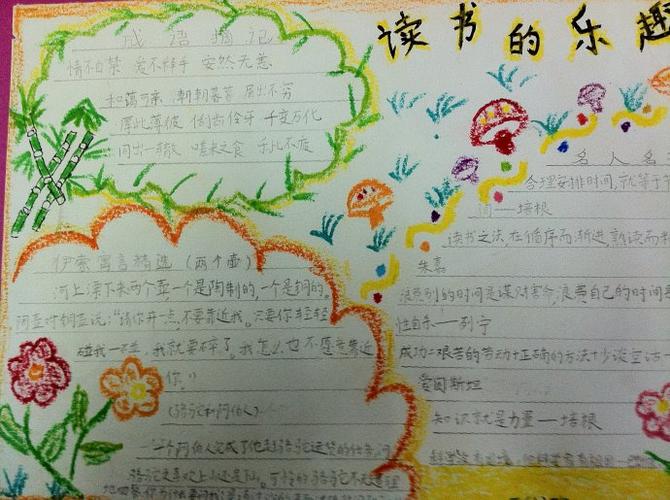 读书的乐趣
成语摘记
情不自禁 爱不释手 安然无恙
和蔼可亲 朝朝暮暮 层出不穷
厚此薄彼 伶牙 千变万化
同出一辙 嗟来之食 乐此不疲
伊索寓言精选（两个壶）
河上漂下来两个壶一个是陶制的，一个是铜的。
对铜壶说：“请你开一点，不要靠近我。只要你轻轻
碰我一下，我就要碎了。我怎么也不愿意靠近
你。”
（骆驼和阿伯人）
一个阿伯人完成了他
名人名
合理安排时间，就等于节
间——培根
读书之法，在循序而渐进，熟读而
朱熹
浪费别的时间是谋财害命，浪费自己的时间是
性自杀——列宁
成功=艰苦的劳动+正确的方法+少谈空话
爱因斯坦
知识就是力量——培根